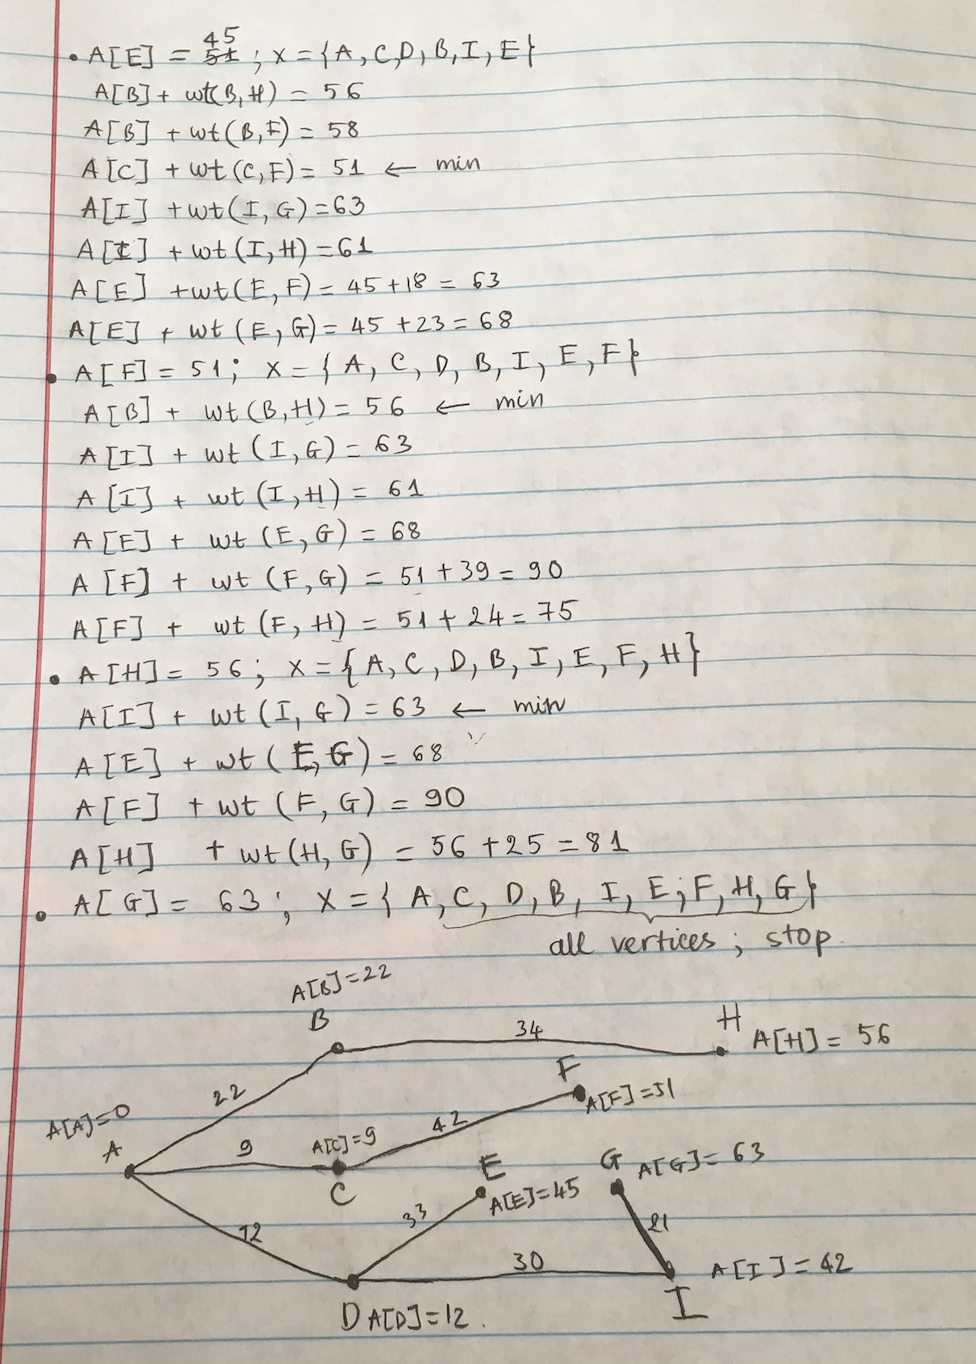 • A[E] = 45 51 ; X = {A, C, D, B, I, E}
A[B] + wt(B, H) = 56
A[B] + wt(B, F) = 58
A[C] + wt(C, F) = 51 ← min
A[I] + wt(I, G) = 63
A[I] + wt(I, H) = 61
A[E] + wt(E, F) = 45 + 18 = 63
A[E] + wt(E, G) = 45 + 23 = 68
• A[F] = 51; X = {A, C, D, B, I, E, F}
A[B] + wt(B, H) = 56 ← min
A[I] + wt(I, G) = 63
A[I] + wt(I, H) = 61
A[E] + wt(E, G) = 68
A[F] + wt(F, G) = 51 + 39 = 90
A[F] + wt(F, H) = 51 + 24 = 75
• A[H] = 56; X = {A, C, D, B, I, E, F, H}
A[I] + wt(I, G) = 63 ← min
A[E] + wt(E, G) = 68
A[F] + wt(F, G) = 90
A[H] + wt(H, G) = 56 + 25 = 81
• A[G] = 63; X = {A, C, D, B, I, E, F, H, G}
all vertices; stop
A[B] = 22
B
34
H
A[H] = 56
F
A[F] = 51
22
A[A] = 0
A
9
A[C] = 9
C
42
E
A[E] = 45
G
A[G] = 63
12
33
21
30
A[I] = 42
I
D A[D] = 12.